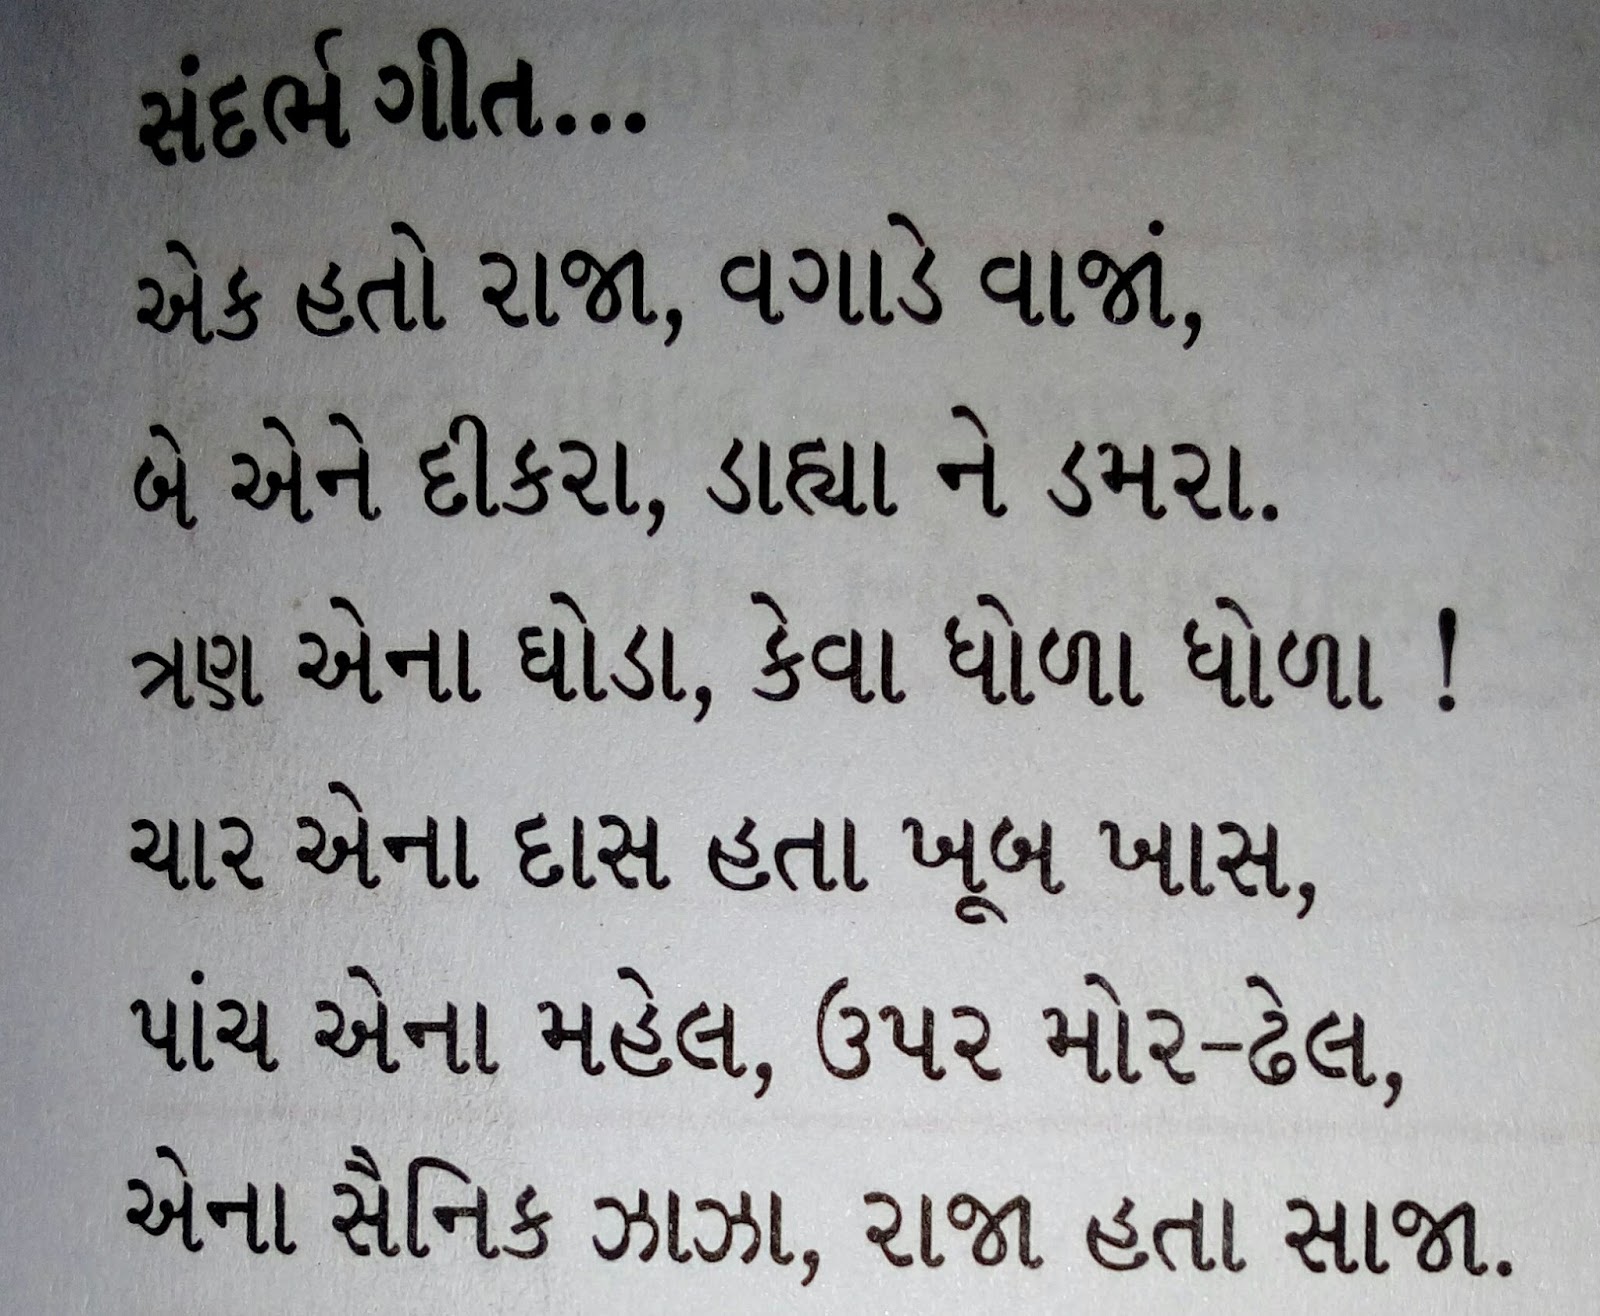 સંદર્ભ ગીત...
એક હતો રાજા, વગાડે વાજાં,
બે એને દીકરા, ડાહ્યા ને ડમરા.
ત્રણ એના ઘોડા, કેવા ધોળા ધોળા !
ચાર એના દાસ હતા ખૂબ ખાસ,
પાંચ એના મહેલ, ઉપર મોર-ઢેલ,
એના સૈનિક ઝાઝા, રાજા હતા સાજા.